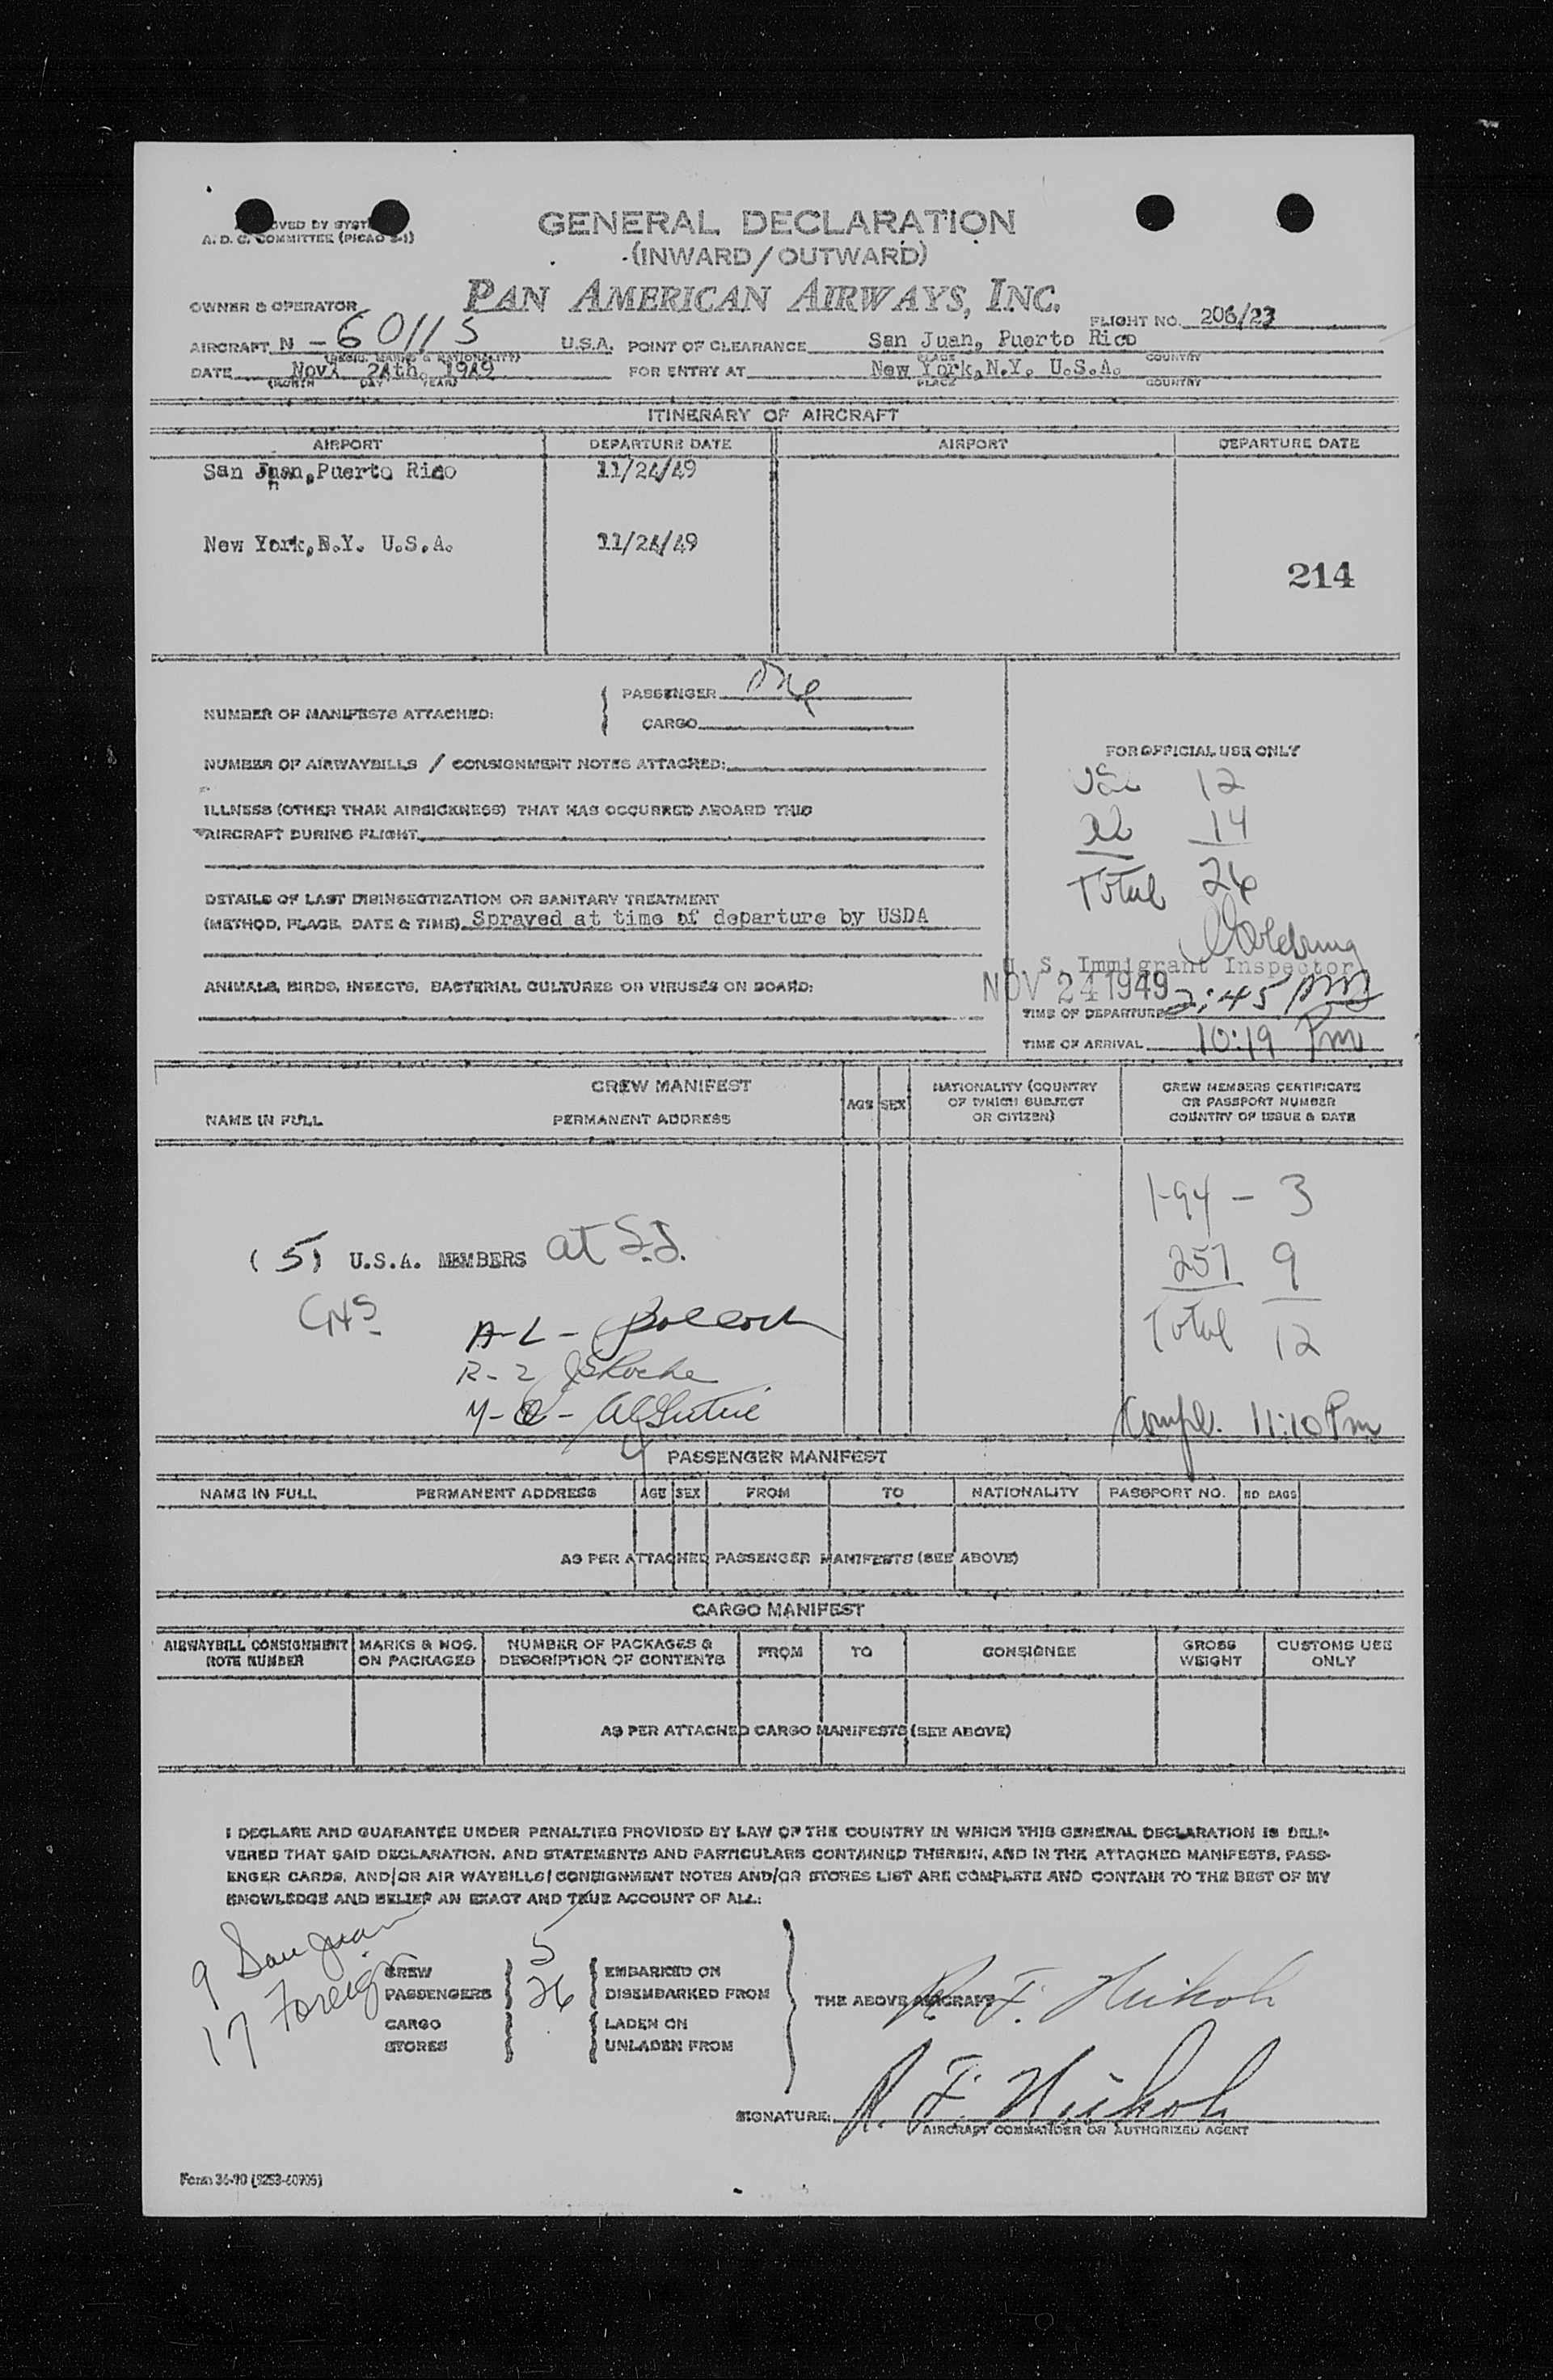 OVED BY SYST
A. D. C. COMMITTEE (PICAO 2-1)
GENERAL DECLARATION
(INWARD/OUTWARD)
OWNER & OPERATOR PAN AMERICAN AIRWAYS, INC.
FLIGHT NO. 206/23
AIRCRAFT N - 60115 U.S.A. POINT OF CLEARANCE San Juan, Puerto Rico
(REGIS. MARKS & NATIONALITY) PLACE COUNTRY
DATE Nov. 24th, 1949 FOR ENTRY AT New York, N.Y. U.S.A.
(MONTH DAY YEAR) PLACE COUNTRY
ITINERARY OF AIRCRAFT
AIRPORT DEPARTURE DATE AIRPORT DEPARTURE DATE
San Juan, Puerto Rico 11/24/49
New York, N.Y. U.S.A. 11/24/49
214
NUMBER OF MANIFESTS ATTACHED: PASSENGER One
CARGO
NUMBER OF AIRWAYBILLS / CONSIGNMENT NOTES ATTACHED:
FOR OFFICIAL USE ONLY
12
14
Total 26
ILLNESS (OTHER THAN AIRSICKNESS) THAT HAS OCCURRED ABOARD THIS
AIRCRAFT DURING FLIGHT
DETAILS OF LAST DISINSECTIZATION OR SANITARY TREATMENT
(METHOD, PLACE, DATE & TIME). Sprayed at time of departure by USDA
U. S. Immigrant Inspector
ANIMALS, BIRDS, INSECTS, BACTERIAL CULTURES OR VIRUSES ON BOARD:
NOV 24 1949
TIME OF DEPARTURE 2:45 PM
TIME OF ARRIVAL 10:19 Pm
CREW MANIFEST
NAME IN FULL PERMANENT ADDRESS AGE SEX NATIONALITY (COUNTRY OF WHICH SUBJECT OR CITIZEN) CREW MEMBERS CERTIFICATE OR PASSPORT NUMBER COUNTRY OF ISSUE & DATE
1-94 - 3
(5) U.S.A. MEMBERS at S.J.
257 9
Total 12
R-2 Roche
Compl. 11:10 Pm
PASSENGER MANIFEST
NAME IN FULL PERMANENT ADDRESS AGE SEX FROM TO NATIONALITY PASSPORT NO. NO BAGS
AS PER ATTACHED PASSENGER MANIFESTS (SEE ABOVE)
CARGO MANIFEST
AIRWAYBILL CONSIGNMENT NOTE NUMBER MARKS & NOS. ON PACKAGES NUMBER OF PACKAGES & DESCRIPTION OF CONTENTS FROM TO CONSIGNEE GROSS WEIGHT CUSTOMS USE ONLY
AS PER ATTACHED CARGO MANIFESTS (SEE ABOVE)
I DECLARE AND GUARANTEE UNDER PENALTIES PROVIDED BY LAW OF THE COUNTRY IN WHICH THIS GENERAL DECLARATION IS DELI-
VERED THAT SAID DECLARATION, AND STATEMENTS AND PARTICULARS CONTAINED THEREIN, AND IN THE ATTACHED MANIFESTS, PASS-
ENGER CARDS, AND/OR AIR WAYBILLS/CONSIGNMENT NOTES AND/OR STORES LIST ARE COMPLETE AND CONTAIN TO THE BEST OF MY
KNOWLEDGE AND BELIEF AN EXACT AND TRUE ACCOUNT OF ALL:
9 San Juan
17 Foreign
CREW 5 EMBARKED ON
PASSENGERS 26 DISEMBARKED FROM
CARGO LADEN ON
STORES UNLADEN FROM
THE ABOVE AIRCRAFT R. F. Nichols
SIGNATURE: R. F. Nichols
(AIRCRAFT COMMANDER OR AUTHORIZED AGENT
Form 36-90 (9253-40905)